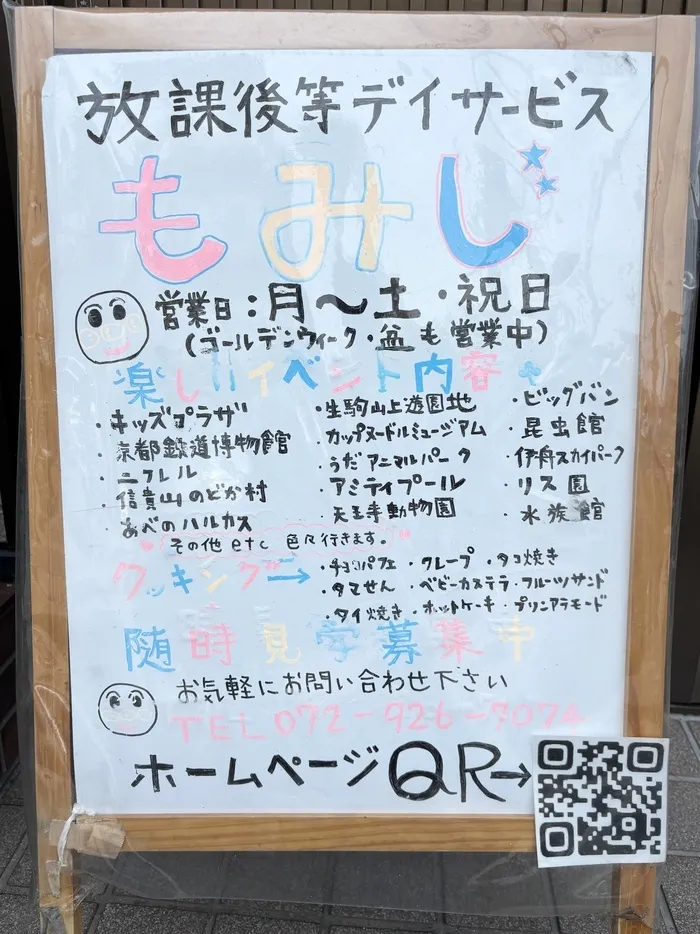 放課後等デイサービス
もみじ
営業日:月〜土・祝日
(ゴールデンウィーク・盆も営業中)
楽しいイベント内容
・キッズプラザ
・京都鉄道博物館
・ニフレル
・信貴山のどか村
・あべのハルカス
・生駒山上遊園地
・カップヌードルミュージアム
・うだアニマルパーク
・アミティプール
・天王寺動物園
・ビッグバン
・昆虫館
・伊丹スカイパーク
・リス園
・水族館
その他etc 色々行きます。
クッキング→
・チョコパフェ ・クレープ ・タコ焼き
・タマせん ・ベビーカステラ・フルーツサンド
・タイ焼き・ホットケーキ・プリンアラモード
随時見学募集中
お気軽にお問い合わせ下さい
TEL072-926-7074
ホームページQR→